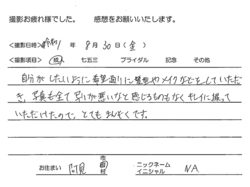 撮影お疲れ様でした。 感想をお願いいたします。
<撮影日時> 令和1年 8月30日(金)
<撮影項目> 成人 七五三 ブライダル 記念 その他
自分がしたいように希望通りに髪型やメイクなどをしていただ
き、写真も全て写りが悪いなと感じるものもなくキレイに撮って
いただけたので、とてもまんぞくです。
お住まい 阿見 市町村 ニックネーム イニシャル N.A.